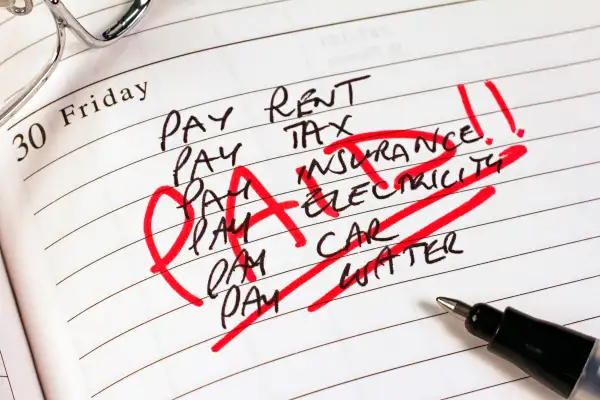 30 Friday
PAY RENT
PAY TAX
PAY INSURANCE
PAY ELECTRICITY
PAY CAR
PAY WATER
PAID!!